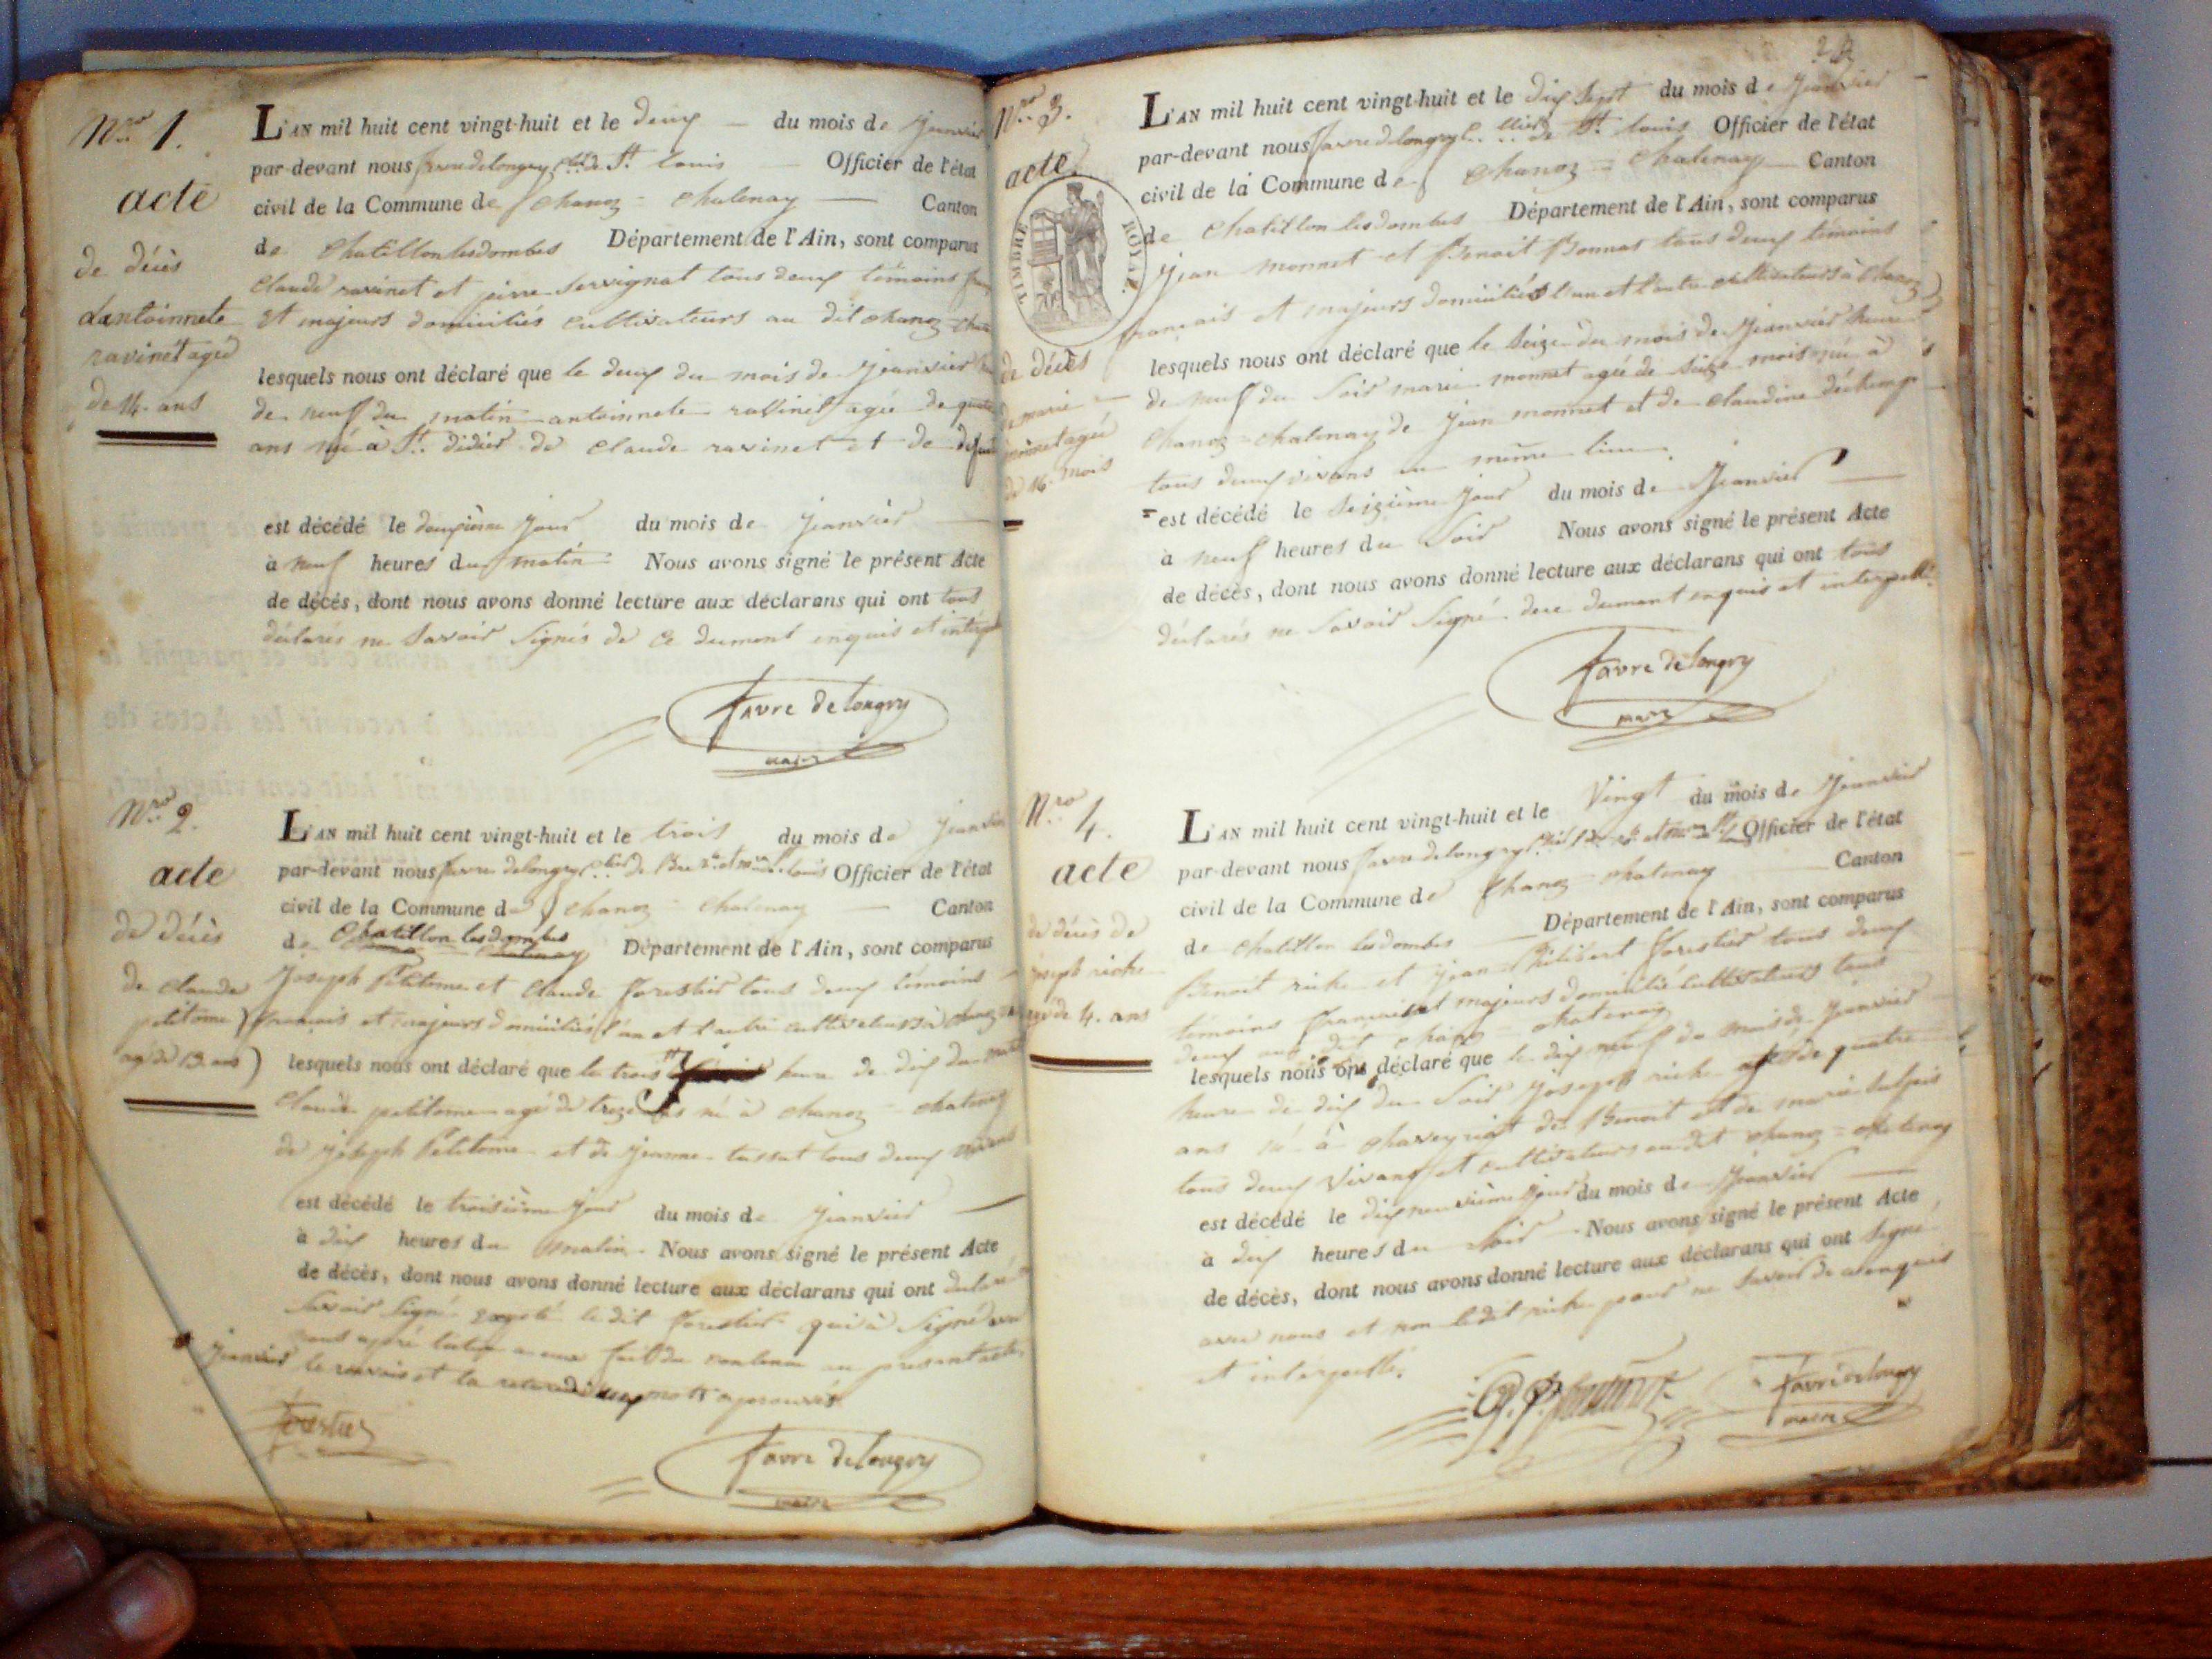 Nro 1.
acte
de décès
dantoinnete
ravinet agée
de 14. ans
L'AN mil huit cent vingt-huit et le deux du mois de Jeanvier
par-devant nous favre delongry de St. louis Officier de l'état
civil de la Commune de Chanoz = Chatenay Canton
de Chatillon lesdombes Département de l'Ain, sont comparus
Claude ravinet et pierre Servignat tous deux témoins
et majeurs domiciliés cultivateurs au dit chanoz
lesquels nous ont déclaré que le deux du mois de Jeanvier
de neuf du matin antoinnete ravinet agée de
ans né à St. didier de Claude ravinet et de
est décédé le deuxième Jour du mois de Jeanvier
à neuf heures du matin Nous avons signé le présent Acte
de décés, dont nous avons donné lecture aux déclarans qui ont tous
déclarés ne Savoir Signés de ce dument enquis et
Favre DeLongry
maire
Nro 2.
acte
de décès
de Claude
petitome
agé de 13. ans
L'AN mil huit cent vingt-huit et le trois du mois de Jeanvier
par-devant nous favre delongry de louis Officier de l'état
civil de la Commune de Chanoz = Chatenay Canton
de Chatillon lesdombes Département de l'Ain, sont comparus
Joseph Petitome et Claude forestier tous deux témoins
francais et majeurs domiciliés l'un et l'autre cultivateurs à
lesquels nous ont déclaré que le trois heure de dix du
Claude petitome agé de treize ans né à chanoz = chatenay
de Joseph Petitome et de Jeanne tous deux
est décédé le troisième Jour du mois de Jeanvier
à dix heures du matin. Nous avons signé le présent Acte
de décès, dont nous avons donné lecture aux déclarans qui ont
Savoir Signé excepté le dit forestier qui à Signé
nous après lecture fait du contenu au present acte
Jeanvier le et la deux mots aprouvés
forestier
Favre DeLongry
maire
Nro 3.
acte
TIMBRE ROYAL.
de décès
de marie
monnet agée
de 16. mois
L'AN mil huit cent vingt-huit et le dix Sept du mois de Jeanvier
par-devant nous favre delongry de St. louis Officier de l'état
civil de la Commune de Chanoz = Chatenay Canton
de Chatillon lesdombes Département de l'Ain, sont comparus
Jean monnet et Benoit Bonnat tous deux témoins
francais et majeurs domiciliés l'un et l'autre cultivateurs à Chanoz
lesquels nous ont déclaré que le Seize du mois de Jeanvier heure
de neuf du Soir marie monnet agée de Seize mois née à
Chanoz = chatenay de Jean monnet et de Claudine
tous deux vivans au même lieu
est décédé le Seizième Jour du mois de Jeanvier
à neuf heures du Soir Nous avons signé le présent Acte
de décès, dont nous avons donné lecture aux déclarans qui ont tous
déclarés ne Savoir Signé de ce dument enquis et interpellé
Favre DeLongry
maire
Nro 4.
acte
de décès de
Joseph riche
agé de 4. ans
L'AN mil huit cent vingt-huit et le Vingt du mois de Jeanvier
par-devant nous favre delongry Officier de l'état
civil de la Commune de Chanoz = chatenay Canton
de Chatillon lesdombes Département de l'Ain, sont comparus
Benoit riche et Jean Philibert forestier tous deux
témoins francais et majeurs domicilié Cultivateurs tous
deux au dit chanoz = chatenay
lesquels nous ont déclaré que le dix neuf du mois de Jeanvier
heure de dix du Soir Joseph riche agé de quatre
ans né à chaveyriat de Benoit et de marie
tous deux Vivans et cultivateurs au dit chanoz = chatenay
est décédé le dix neuvième Jour du mois de Jeanvier
à dix heures du Soir Nous avons signé le présent Acte
de décès, dont nous avons donné lecture aux déclarans qui ont Signé
avec nous et non le dit riche pour ne Savoir de ce enquis
et interpellé.
Favre DeLongry
maire